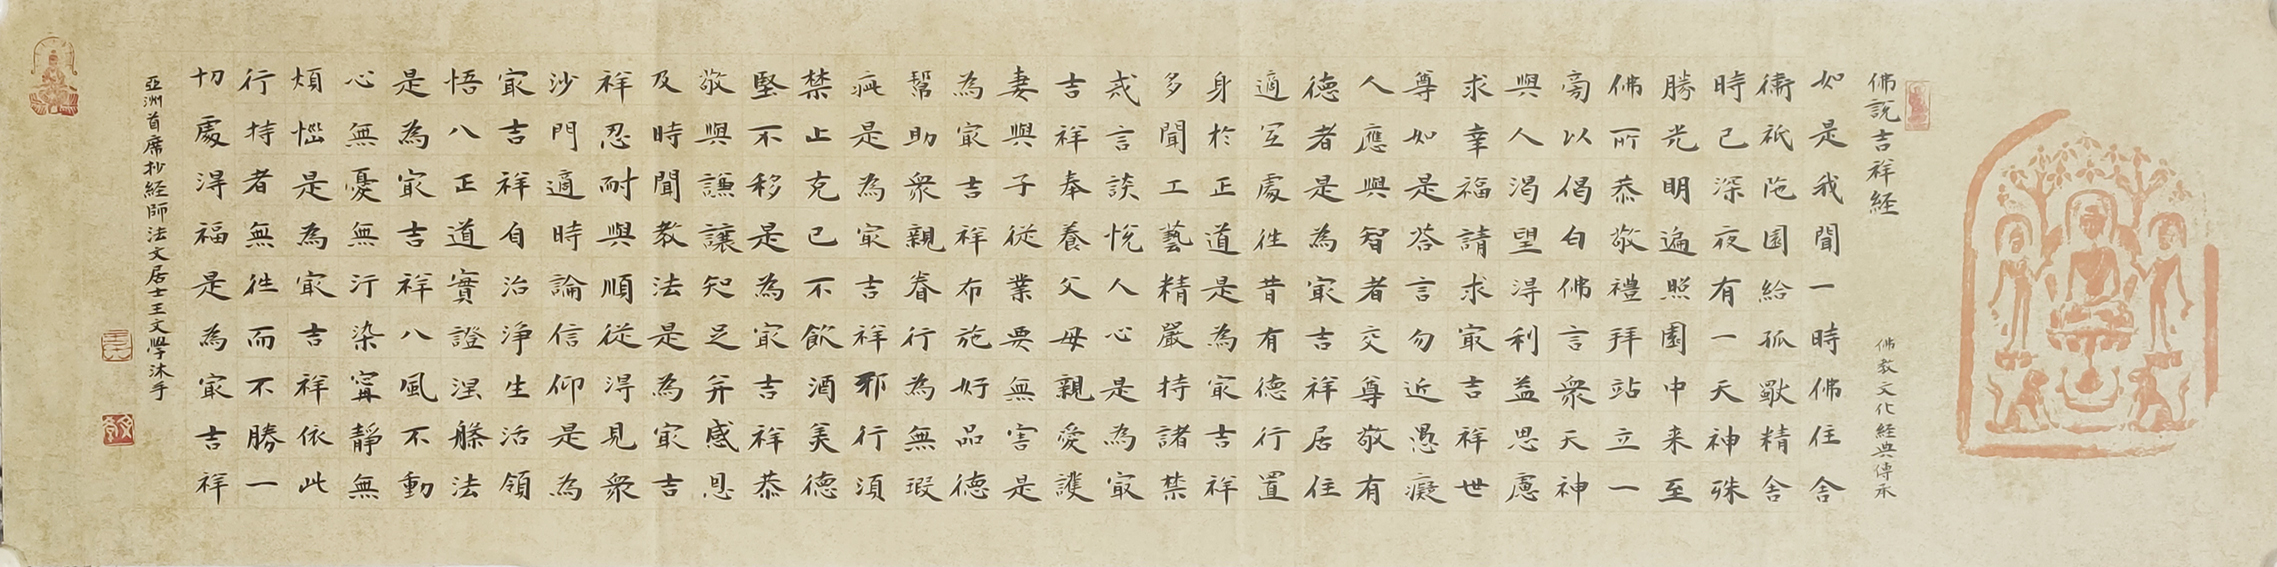 佛說吉祥經
佛教文化經典傳承
如是我聞一時佛住舍
衛祇陀園給孤獨精舍
時已深夜有一天神殊
勝光明遍照園中来至
佛所恭敬禮拜站立一
旁以偈白佛言衆天神
與人渴望得利益思慮
求幸福請求冣吉祥世
尊如是答言勿近愚癡
人應與智者交尊敬有
德者是為冣吉祥居住
適宜處往昔有德行置
身於正道是為冣吉祥
多聞工藝精嚴持諸禁
戒言談悅人心是為冣
吉祥奉養父母親愛護
妻與子從業要無害是
為冣吉祥布施好品德
幫助衆親眷行為無瑕
疵是為冣吉祥邪行須
禁止克己不飲酒美德
堅不移是為冣吉祥恭
敬與謙讓知足并感恩
及時聞教法是為冣吉
祥忍耐與順從得見衆
沙門適時論信仰是為
冣吉祥自治淨生活領
悟八正道實證涅槃法
是為冣吉祥八風不動
心無憂無污染寧靜無
煩惱是為冣吉祥依此
行持者無往而不勝一
切處得福是為冣吉祥
亞洲首席抄経師法文居士王文學沐手